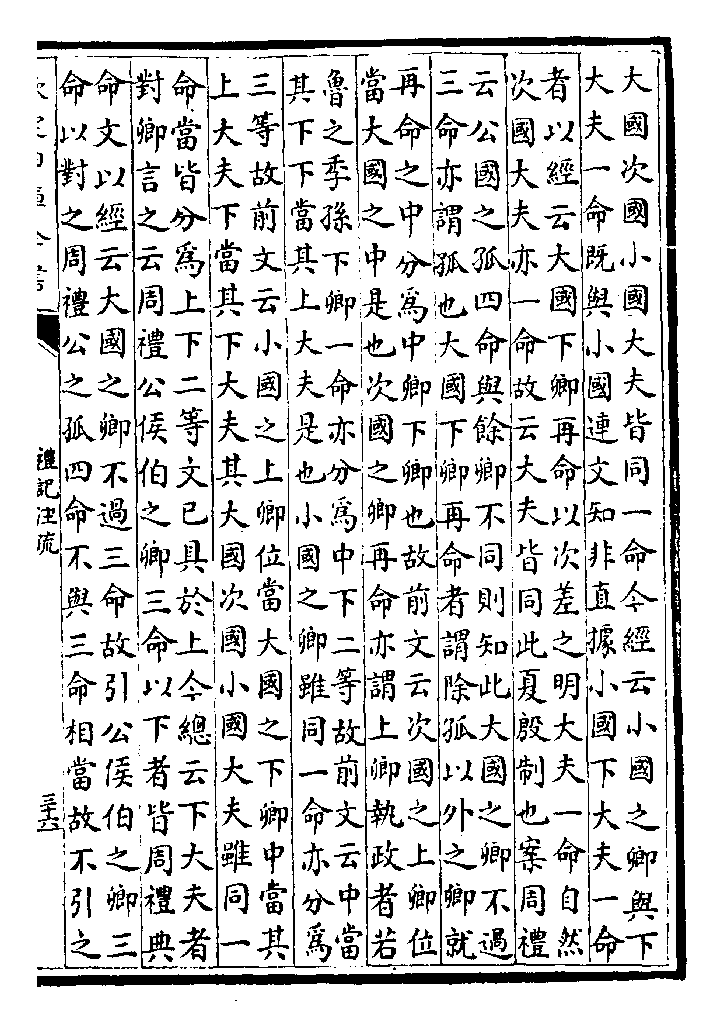 大國次國小國大夫皆同一命今經云小國之卿與下
大夫一命既與小國連文知非直據小國下大夫一命
者以經云大國下卿再命以次差之明大夫一命自然
次國大夫亦一命故云大夫皆同此夏殷制也案周禮
云公國之孤四命與餘卿不同則知此大國之卿不過
三命亦謂孤也大國下卿再命者謂除孤以外之卿就
再命之中分爲中卿下卿也故前文云次國之上卿位
當大國之中是也次國之卿再命亦謂上卿執政者若
魯之季孫下卿一命亦分爲中下二等故前文云中當
其下下當其上大夫是也小國之卿雖同一命亦分爲
三等故前文云小國之上卿位當大國之下卿中當其
上大夫下當其下大夫其大國次國小國大夫雖同一
命當皆分爲上下二等文已具於上今總云下大夫者
對卿言之云周禮公侯伯之卿三命以下者皆周禮典
命文以經云大國之卿不過三命故引公侯伯之卿三
命以對之周禮公之孤四命不與三命相當故不引之
禮記注疏
三十六